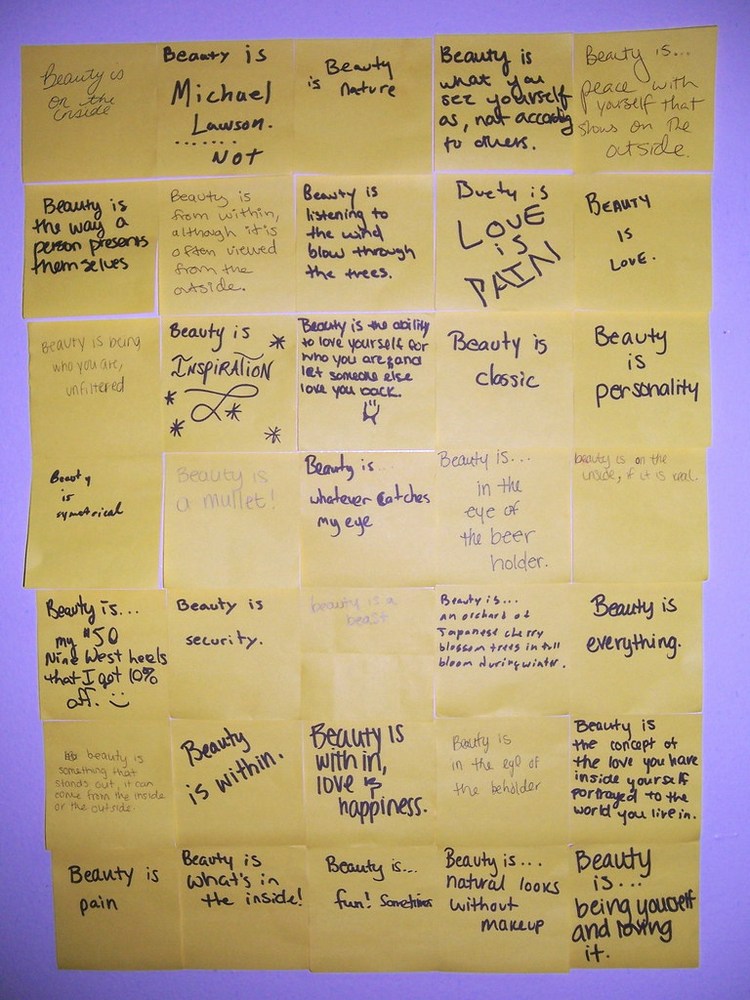 Beauty is
on the
inside
Beauty is
Michael
Lawson.
NOT
Beauty
is nature
Beauty is
what you
see yourself
as, not according
to others.
Beauty is...
peace with
yourself that
shows on the
outside.
Beauty is
the way a
person presents
themselves
Beauty is
from within,
although it is
often viewed
from the
outside.
Beauty is
listening to
the wind
blow through
the trees.
Buety is
LOVE
is
PAIN
BEAUTY
IS
LOVE.
Beauty is being
who you are,
unfiltered
Beauty is
INSPIRATION
Beauty is the ability
to love yourself for
who you are and
let someone else
love you back.
Beauty is
classic
Beauty
is
personality
Beauty
is
symetrical
Beauty is
a mullet!
Beauty is
whatever catches
my eye
Beauty is...
in the
eye of
the beer
holder.
beauty is on the
inside, if it is real.
Beauty is...
my $50
Nine West heels
that I got 10%
off. :)
Beauty is
security.
beauty is a
beast
Beauty is...
an orchard of
Japanese cherry
blossom trees in full
bloom during winter.
Beauty is
everything.
beauty is
something that
stands out, it can
come from the inside
or the outside.
Beauty
is within.
Beauty is
within,
love is
happiness.
Beauty is
in the eye of
the beholder
Beauty is
the concept of
the love you have
inside yourself
portrayed to the
world you live in.
Beauty is
pain
Beauty is
what's in
the inside!
Beauty is...
fun! Sometimes
Beauty is...
natural looks
without
makeup
Beauty
is...
being yourself
and loving
it.